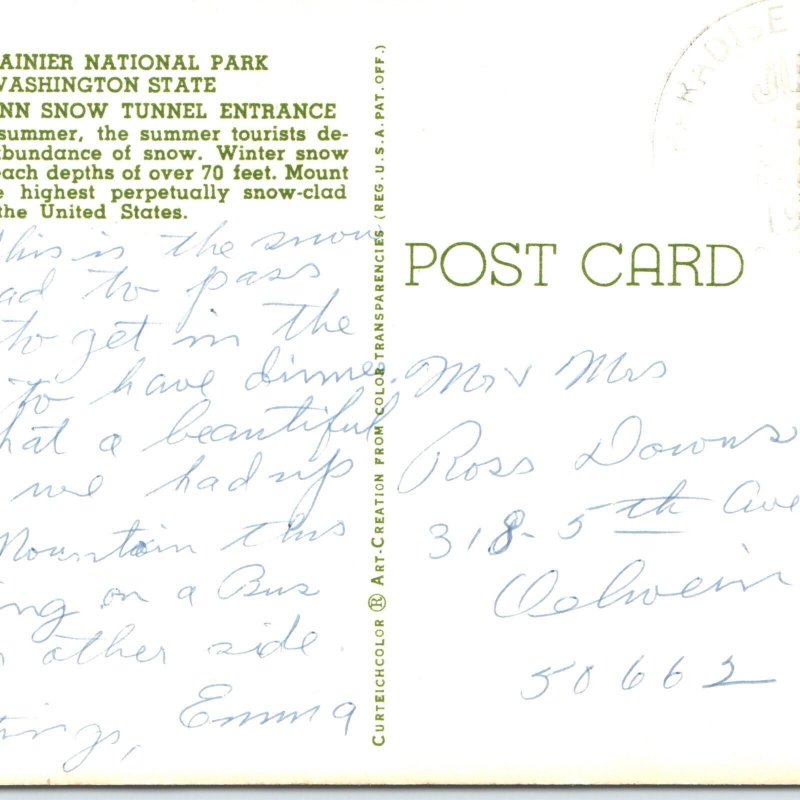 AINIER NATIONAL PARK
WASHINGTON STATE
NN SNOW TUNNEL ENTRANCE
summer, the summer tourists de-
bundance of snow. Winter snow
each depths of over 70 feet. Mount
e highest perpetually snow-clad
the United States.
This is the snow
ad to pass
to get in the
to have dinne
hat a beautiful
we had up
Mountain this
ng on a Bus
other side.
tings, Emma
CURTEICHCOLOR ® ART-CREATION FROM COLOR TRANSPARENCIES (REG. U.S.A. PAT. OFF.)
PARADISE
POST CARD
Mr & Mrs
Ross Downs
318-5th Ave
Oelwein
50662